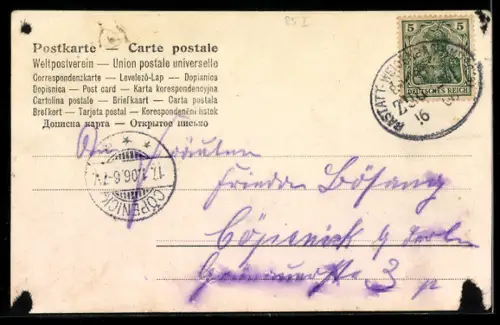 R5 I
Postkarte — Carte postale
Weltpostverein — Union postale universelle
Correspondenzkarte — Levelező-Lap — Dopisnica
Dopisnica — Post card — Karta korespondencyjna
Cartolina postale — Briefkaart — Carta postala
Brefkort — Tarjeta postal — Korespondenční lístek
Дописна карта — Открытое письмо
5 5
DEUTSCHES REICH
RASTATT
ZUG
16
CÖPENICK
17.1.06.6-7V.
Fräulein
Frieda
Cöpenick b/ Berlin
3